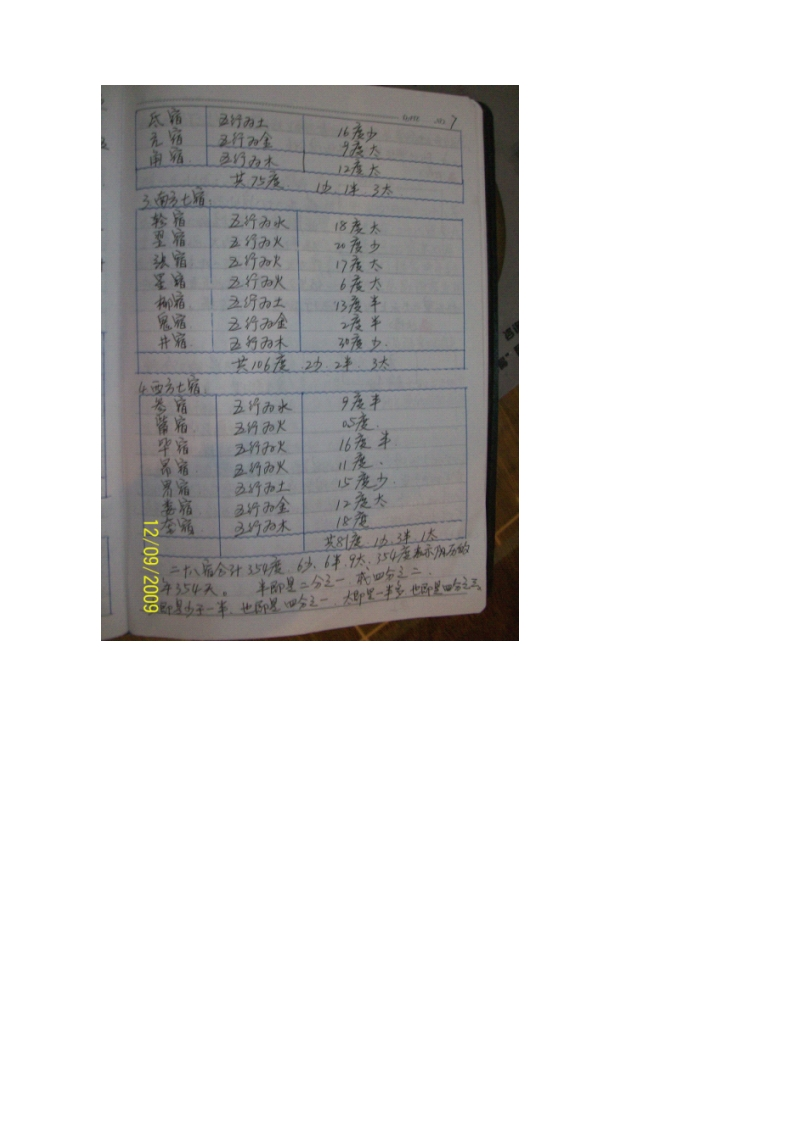 7
氐宿 五行为土 16度少
亢宿 五行为金 9度太
角宿 五行为木 12度太
共75度 1少.1半.3太
3.南方七宿.
轸宿 五行为水 18度太
翌宿 五行为火 20度少
张宿 五行为火 17度太
星宿 五行为火 6度太
柳宿 五行为土 13度半
鬼宿 五行为金 2度半
井宿 五行为木 30度少.
共106度 2少.2半.3太
4.西方七宿.
参宿 五行为水 9度半
觜宿 五行为火 05度.
毕宿 五行为火 16度半.
昴宿 五行为火 11度.
胃宿 五行为土 15度少.
娄宿 五行为金 12度太
奎宿 五行为木 18度
共81度.1少.3半.1太
二十八宿合计354度.6少.6半.9太.354度表示阴历的
年354天。 半即是二分之一.或四分之二.
即是少于一半.也即是四分之一.太即是一半多.也即是四分之三.
12/09/2009